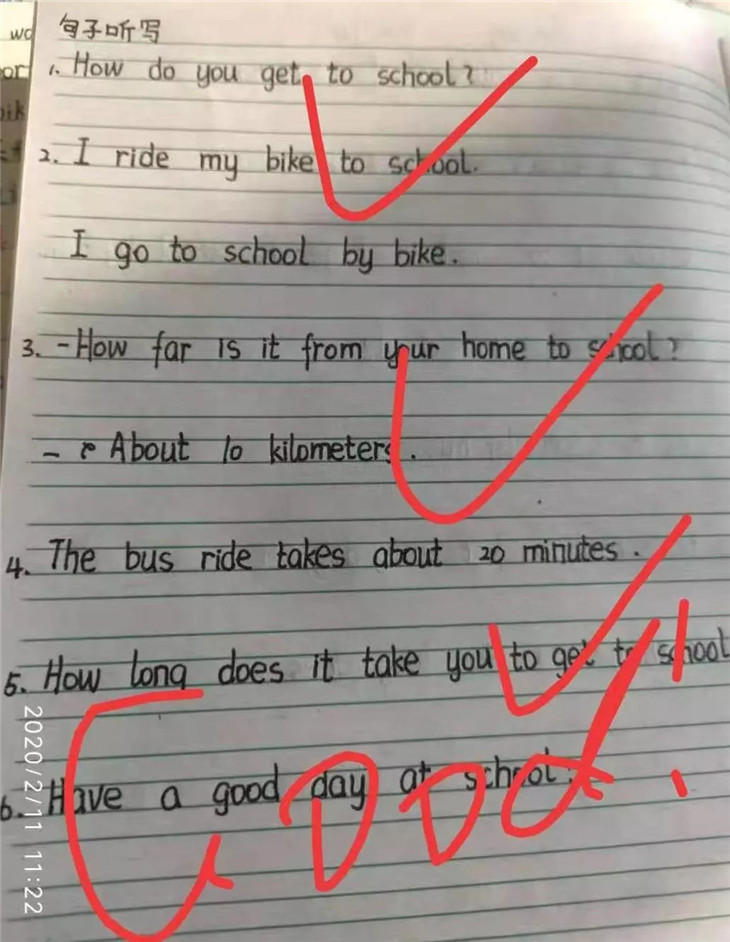 句子听写
1. How do you get to school?
2. I ride my bike to school.
I go to school by bike.
3. -How far is it from your home to school?
- About 10 kilometers.
4. The bus ride takes about 20 minutes.
5. How long does it take you to get to school
6. Have a good day at school.
Good!
2020/2/11 11:22